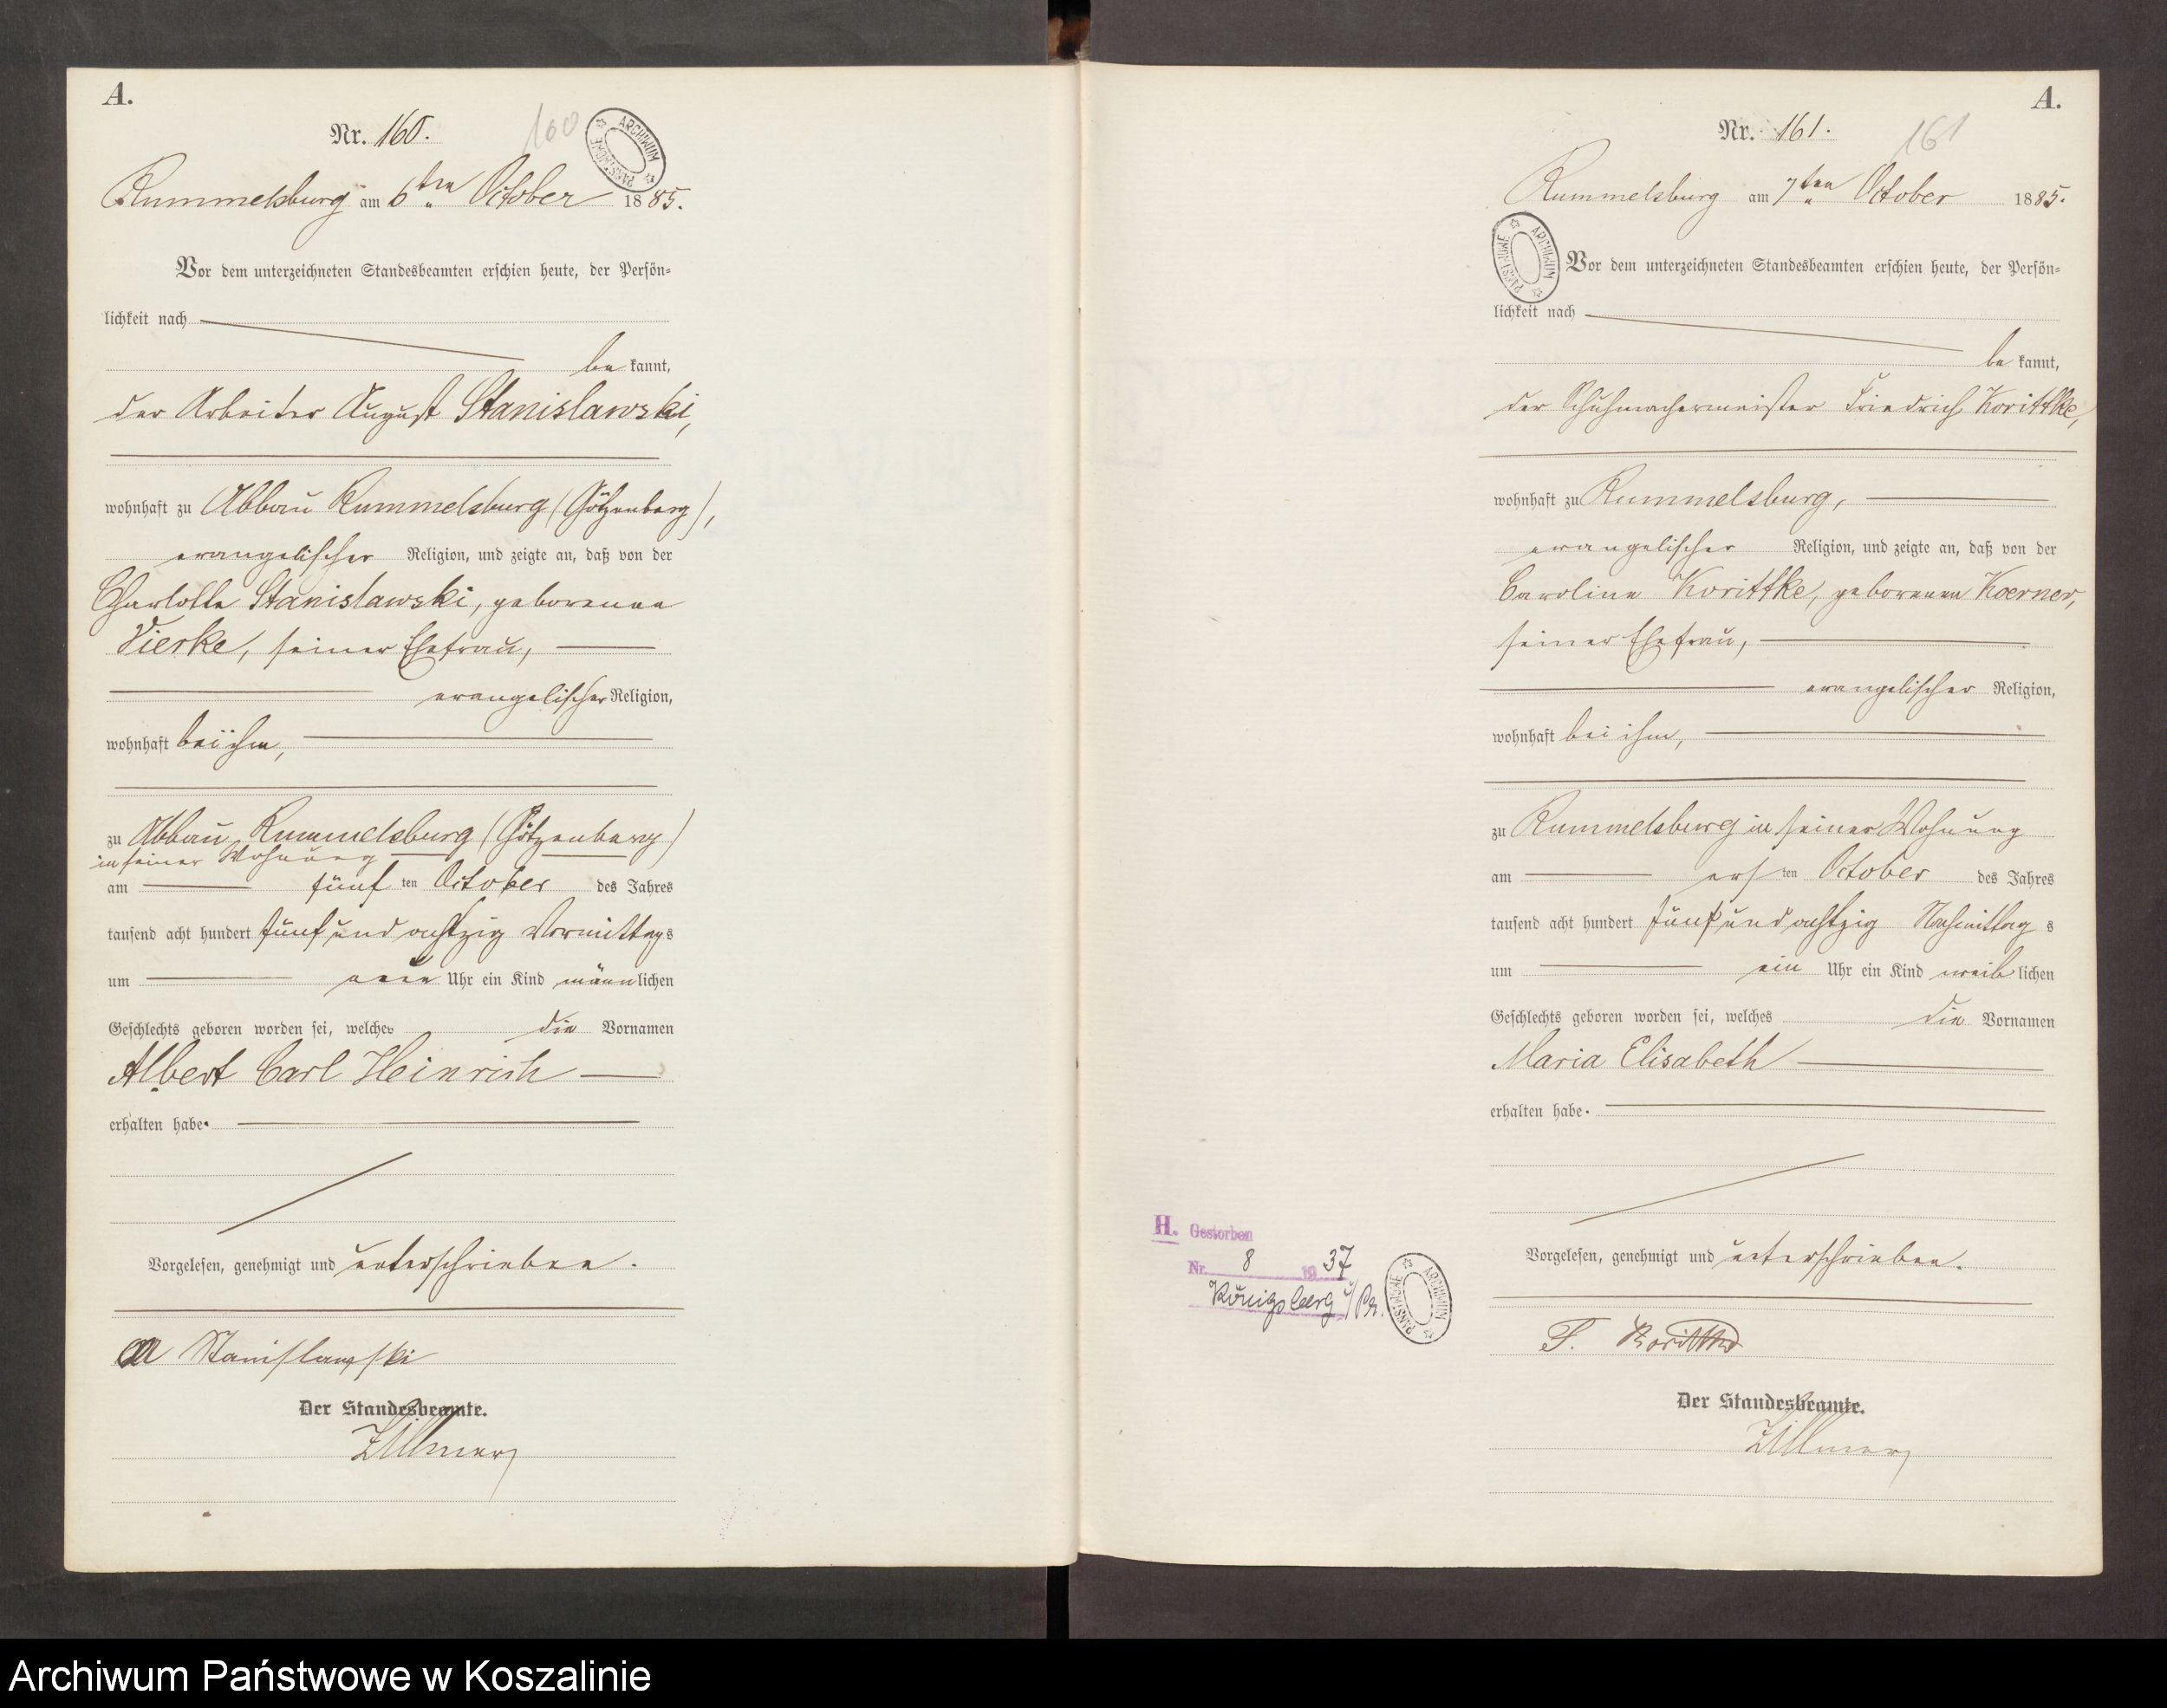 A.
Nr. 160.
160
ARCHIWUM PAŃSTWOWE
Rummelsburg am 6ten October 1885.
Vor dem unterzeichneten Standesbeamten erschien heute, der Persön=
lichkeit nach
be kannt,
der Arbeiter August Stanislawski,
wohnhaft zu Abbau Rummelsburg (Götzenberg),
evangelischer Religion, und zeigte an, daß von der
Charlotte Stanislawski, geborenen
Vierke, seiner Ehefrau,
evangelischer Religion,
wohnhaft bei ihm,
zu Abbau Rummelsburg (Götzenberg)
in seiner Wohnung
am fünf ten October des Jahres
tausend acht hundert fünf und achtzig Vormittags
um Uhr ein Kind männlichen
Geschlechts geboren worden sei, welches die Vornamen
Albert Carl Heinrich
erhalten habe.
Vorgelesen, genehmigt und unterschrieben.
A Stanislawski
Der Standesbeamte.
Zillmer
A.
Nr. 161.
161
Rummelsburg am 7ten October 1885.
ARCHIWUM PAŃSTWOWE
Vor dem unterzeichneten Standesbeamten erschien heute, der Persön=
lichkeit nach
be kannt,
der Schuhmachermeister Friedrich Korittke,
wohnhaft zu Rummelsburg,
evangelischer Religion, und zeigte an, daß von der
Caroline Korittke, geborenen Koerner,
seiner Ehefrau,
evangelischer Religion,
wohnhaft bei ihm,
zu Rummelsburg in seiner Wohnung
am ers ten October des Jahres
tausend acht hundert fünf und achtzig Nachmittag s
um ein Uhr ein Kind weib lichen
Geschlechts geboren worden sei, welches die Vornamen
Maria Elisabeth
erhalten habe.
Vorgelesen, genehmigt und unterschrieben.
F. Korittke
Der Standesbeamte.
Zillmer
H. Gestorben
Nr. 8 19 37
Königsberg i/Pr.
ARCHIWUM PAŃSTWOWE
Archiwum Państwowe w Koszalinie